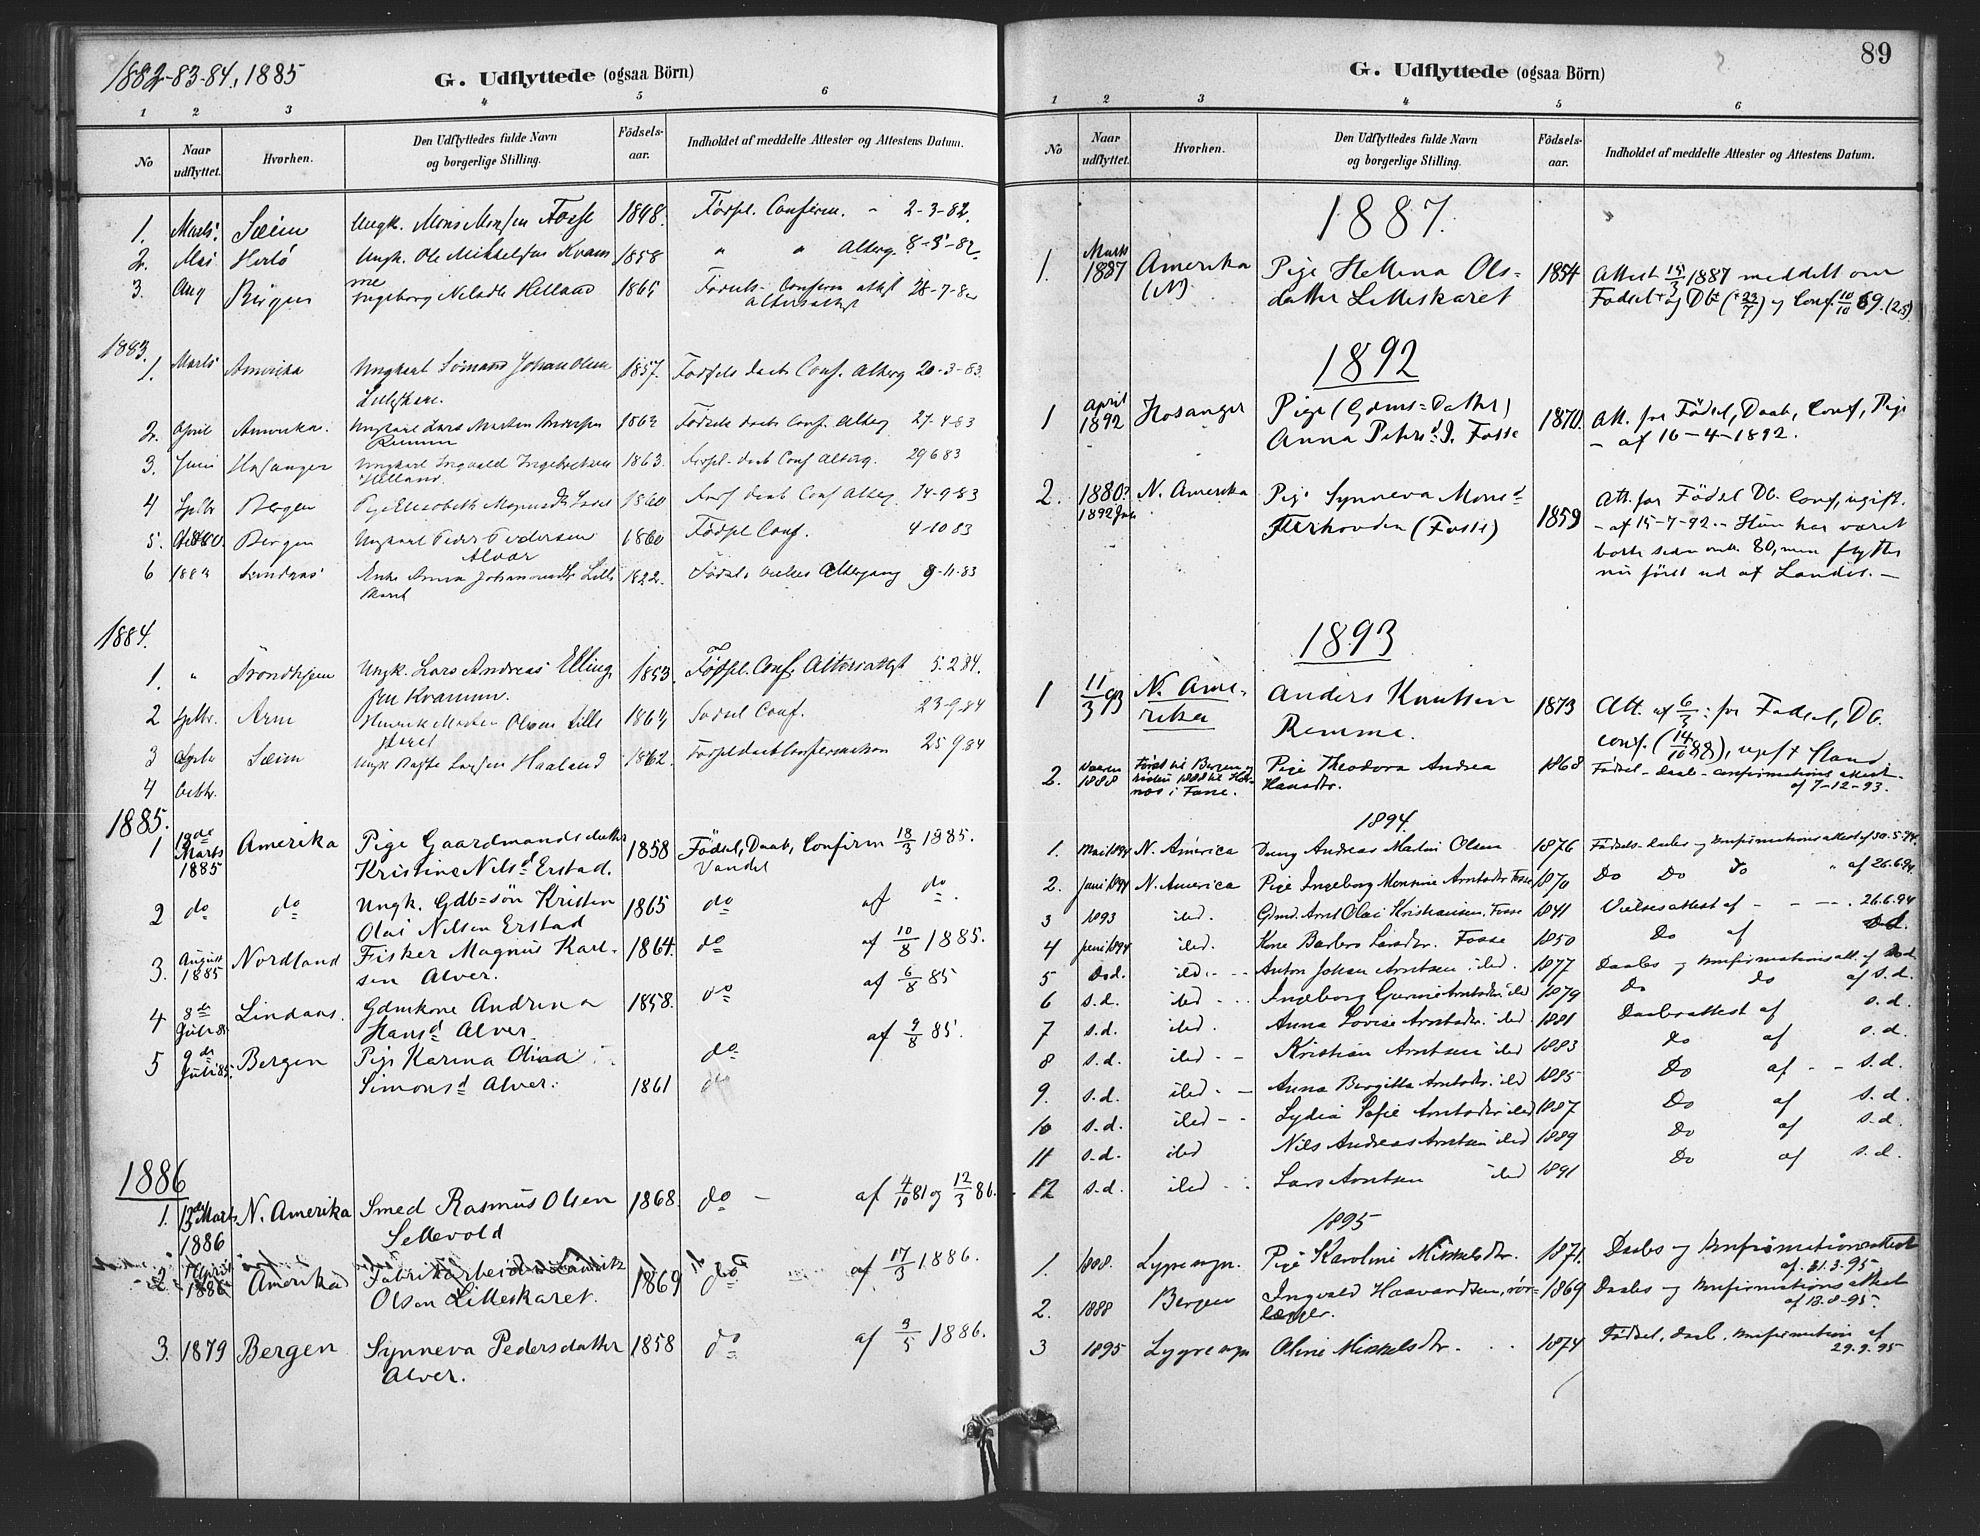 1882-83-84, 1885
G. Udflyttede (ogsaa Börn)
1 2 3 4 5 6
No Naar udflyttet. Hvorhen. Den Udflyttedes fulde Navn og borgerlige Stilling. Födsels-aar. Indholdet af meddelte Attester og Attestens Datum.
1. Marts. Sæim Ungk. Mons Monsen Fosse 1848. Födsl. Confirm. - 2-3-82.
2. Mai Herlö Ungk. Ole Mikkelsen Kvam 1858 " " Alterg. 8-3-82
me
3. Aug Bergen Ingeborg Helland 1865 Födsels- Confirm attest 28-7-82
altersattest
1883.
1. Marts Amerika Ungkarl Simon Johan Olsen 1857. Födsels daab Conf. Alterg 20-3-83.
Lilleskare.
2. April Amerika. Ungkarl Lars Martin Andersen Födsels daab Conf. Alterg 27-4-83
Remme
3. Juni Hosanger Ungkarl Ingvald Ingebretsen 1863. Födsel-daab Conf Alterg. 29 6 83
Helland.
4 Septbr Bergen Pige Elisabeth 1860 daab Conf Alterg 14-9-83
5. Bergen Ungkarl Peder Pedersen 1860 Födsel Conf. 4-10 83
Alver
6 Lindaas Enke Anna Lille 1822. Födsels Altergang 9-11-83
skaret
1884.
1. " Trondhjem Ungk. Lars Andreas Elling 1853. Födsel. Conf. Altersattest 5.2.84.
sen Kvamm.
2 Septbr. Arne Henrik Olsen Lille 1864 Födsel Conf. 23-9.84
skaret
3 Septbr Sæim Ungk Lassen Haaland 1862. Födsel daab Confirmation 25 9 84
4 Octbr.
1885.
1 19de Marts 1885 Amerika Pige Gaardmandsdatter 1858 Födsel, Daab, Confirm 18/3 1885.
Kristine Nilsd Erstad. Vandel
2 do do Ungk. Gdb=sön Kristen 1865 do af do.
Olai Nilsen Erstad
3. August 1885 Nordland Fisker Magnus Karl- 1864. do af 10/8 1885.
sen Alver.
4 8de Juli 85 Lindaas. Gdmkone Andrina 1858. do af 6/8 85
Hansd Alver
5 9de Juli 85. Bergen Pige Karina Olina do af 9/8 85.
Simonsd Alver. 1861 do
1886
1. 13de Marts 1886 N. Amerika Smed Rasmus Olsen 1868. do - af 4/10 81 og 12/3 86.
Sellevold
2 April 1886 Amerika Fabrikarbeider Olsen Lilleskaret. 1869 do af 17/3 1886.
3. 1879 Bergen Synneva Pedersdatter 1858 do af 3/5 1886.
Alver.
89
G. Udflyttede (ogsaa Börn)
1 2 3 4 5 6
No Naar udflyttet. Hvorhen. Den Udflyttedes fulde Navn og borgerlige Stilling. Födsels-aar. Indholdet af meddelte Attester og Attestens Datum.
1887.
1. Marts 1887 Amerika (N) Pige Hellena Ols- 1854 Attest 15/3 1887 meddelt om
datter Lilleskaret Födsel og Db (22/7) og Conf. 10/10 69. (2.5)
1892
1 April 1892 Hosanger Pige (Gdms=Datter) 1870. Att. for Födsel, Daab, Conf, Pige
Anna Petersd. J. Fosse - af 16-4-1892.
2. 1880? N. Amerika Pige Synneva Monsd Att. for Födsel Db. Conf, ugift.
1892 Juli (Fosse) 1859 - af 15-7-92. - Hun har været
borte siden 80, men flytter
nu först ud af Landet. -
1893
1 11/3 93 N. Ame-rika Anders Knutsen 1873 Att. af 6/3: for Födsel, Db.
Remme. conf. (14/10 88), ugift Stand.
2. Vaaren 1888 Först til Bergen og siden 1888 til i Fane. Pige Theodora Andrea 1868 Födsel-daabs-confirmations attest.
Hansdtr. af 7-12-93.
1894.
1. Mai 1894 N. America Dreng Andreas Martin Olsen 1876 Födsels-Daabs og konfirmationsattest af 30.5.94.
2. Juni 1894 N. America Pige Ingeborg Monsine Arntsdtr Fosse 1870 Do Do Do " af 26.6.94
3 1893 ibd. Gdmd. Arnt Olai Kristiansen, Fosse 1841 Vielsesattest af - - - . 26.6.94
4 Juni 1894 ibd. Kone Barbro Larsdtr. Fosse 1850 Do af s.d.
5 s.d. ibd. - - Anton Johan Arntsen. ibd. 1877 Daabs og konfirmationsatt. af s.d.
6 s.d. ibd - - Ingeborg Gurine Arntsdtr. ibd 1879 Do do af s.d.
7 s.d. ibd. Anna Lovise Arntsdtr. ibd 1881 Daabsattest af s.d.
8 s.d. ibd. - - Kristian Arntsen ibd 1883 Do af s.d.
9. s.d. ibd. - - Anna Bergitta Arntsdtr. ibd 1885 Do af - - s.d.
10 s.d. ibd - - Lydia Sofie Arntsdtr ibd 1887 Do af s.d.
11 s.d. ibd Nils Andreas Arntsen ibd 1889 Do af s.d.
12 s.d. ibd. - Lars Arntsen ibd 1891 Do af s.d.
1895
1. 1888. Lygresogn. Pige Karoline Mikkelsdtr. 1871. Daabs og konfirmationsattest
af 31.3.95
2. 1888 Bergen Ingvald Haavardsen, rör- 1869 Daabs og konfirmationsattest
lægger. af 18.8-95.
3 1895 Lygresogn Oline Mikkelsdtr. . . 1874 Födsel, daab, konfirmation af
29.9.95